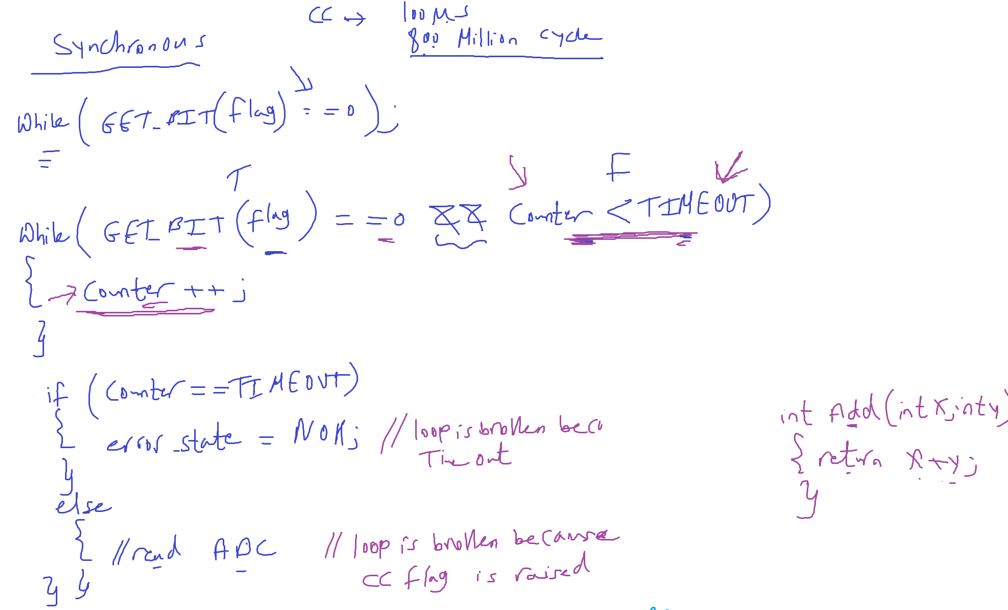 CC → 100 Ms
Synchronous
800 Million cycle
while ( GET_BIT(flag) == 0 );
T F
while ( GET_BIT(flag) == 0 && Counter < TIMEOUT)
{
→ Counter ++;
}
if (Counter == TIMEOUT)
{ error_state = NOK; // loop is broken beca
Time out
}
else
{ // read ADC // loop is broken because
CC flag is raised
} }
int Add(int x, int y)
{ return x+y;
}